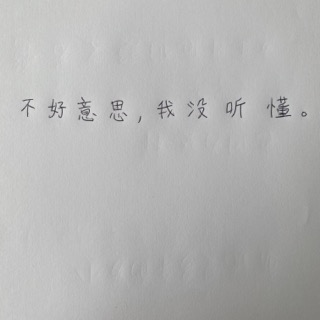 不好意思，我没听懂。